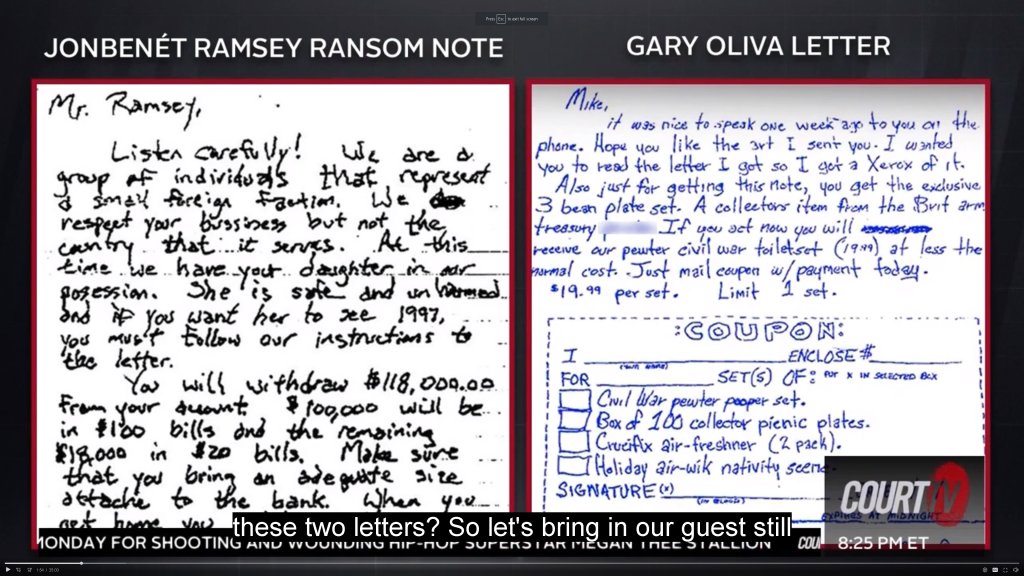 Press Esc to exit full screen
JONBENÉT RAMSEY RANSOM NOTE
Mr. Ramsey,
Listen carefully! We are a
group of individuals that represent
a small foreign faction. We
respect your bussiness but not the
country that it serves. At this
time we have your daughter in our
posession. She is safe and unharmed
and if you want her to see 1997,
you must follow our instructions to
the letter.
You will withdraw $118,000.00
from your account. $100,000 will be
in $100 bills and the remaining
$18,000 in $20 bills. Make sure
that you bring an adequate size
attache to the bank. When you
get home you
GARY OLIVA LETTER
Mike,
it was nice to speak one week ago to you on the
phone. Hope you like the art I sent you. I wanted
you to read the letter I got so I got a Xerox of it.
Also just for getting this note, you get the exclusive
3 bean plate set. A collectors item from the Brit arm
treasury If you act now you will
receive our pewter civil war toiletset (19.99) at less the
normal cost. Just mail coupon w/payment today.
$19.99 per set. Limit 1 set.
:COUPON:
I ENCLOSE $
(YOUR NAME)
FOR SET(S) OF: PUT X IN SELECTED BOX
Civil War pewter pooper set.
Box of 100 collector picnic plates.
Crucifix air-freshner (2 pack).
Holiday air-wik nativity scene
SIGNATURE (X)
EXPIRES AT MIDNIGHT
COURT TV
these two letters? So let's bring in our guest still
MONDAY FOR SHOOTING AND WOUNDING HIP-HOP SUPERSTAR MEGAN THEE STALLION
COU
8:25 PM ET